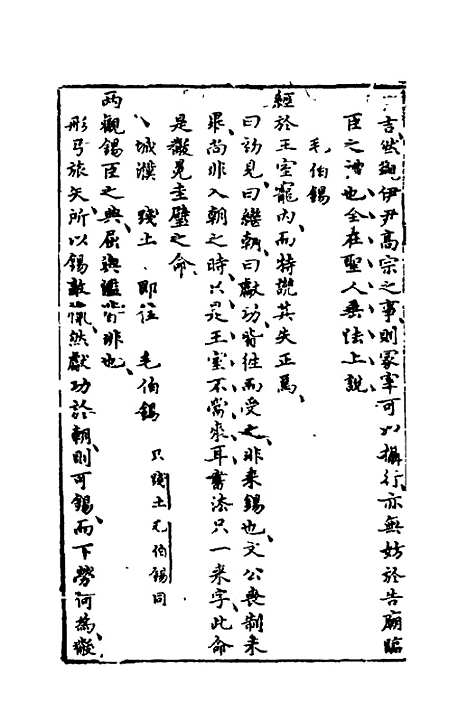 言然觀伊尹高宗之事則冢宰可以攝行亦無妨於告廟臨
臣之禮也全在聖人垂法上說
毛伯錫
經於王室寵内而特譏其失正焉
曰初見曰繼朝曰獻功皆往而受之非来錫也文公喪制未
畢尚非入朝之時只是王室不當来耳書法只一来字此命
是黻冕圭璧之命
城濮 踐土 即位 毛伯錫 只踐土毛伯錫同
兩觀錫臣之典屈與濫皆非也
彤弓旅矢所以錫敵愾然獻功於朝則可錫而下勞何為